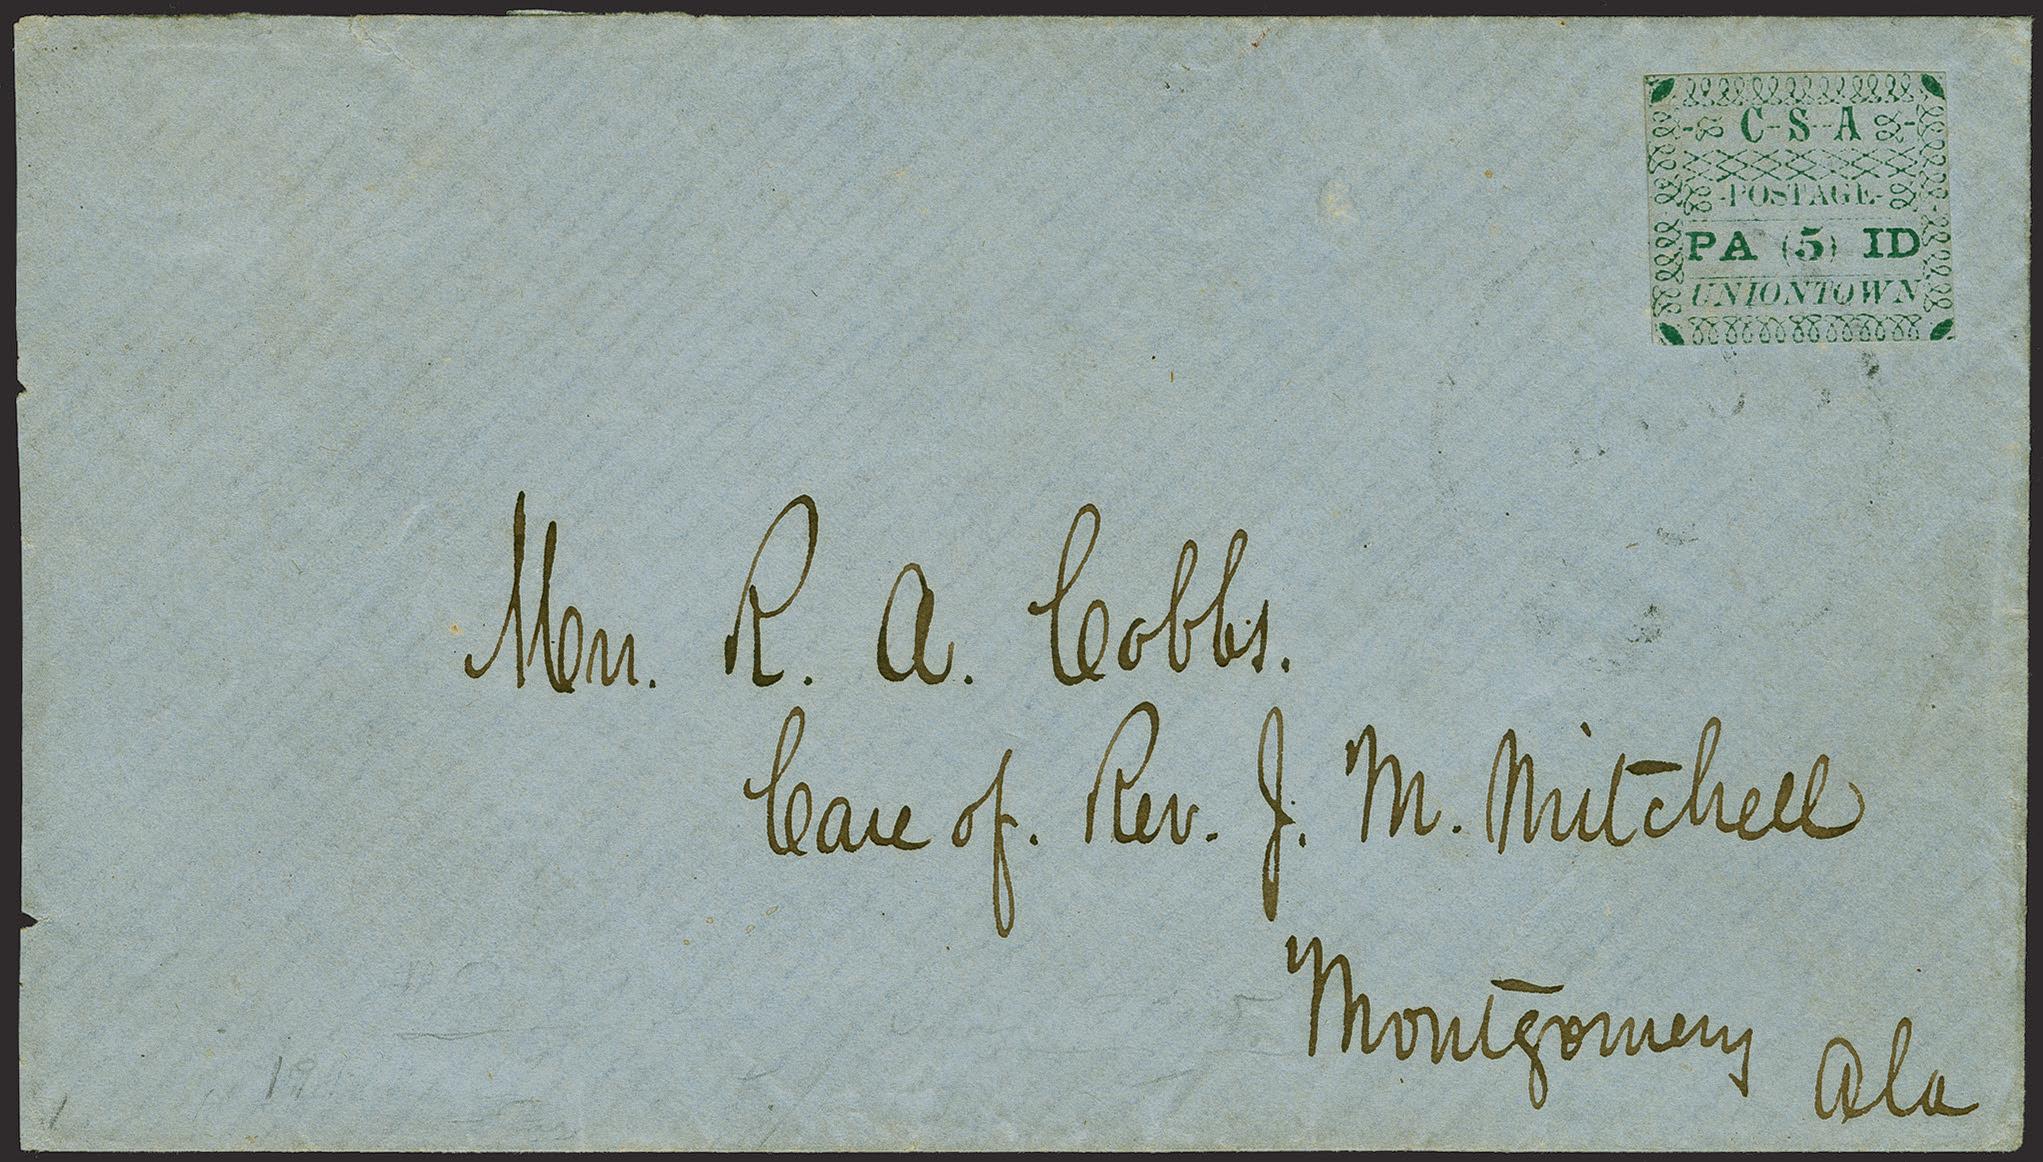 C-S-A
POSTAGE
PA (5) ID
UNIONTOWN
Mrs. R. A. Cobbs.
Care of. Rev. J. M. Mitchell
Montgomery
Ala